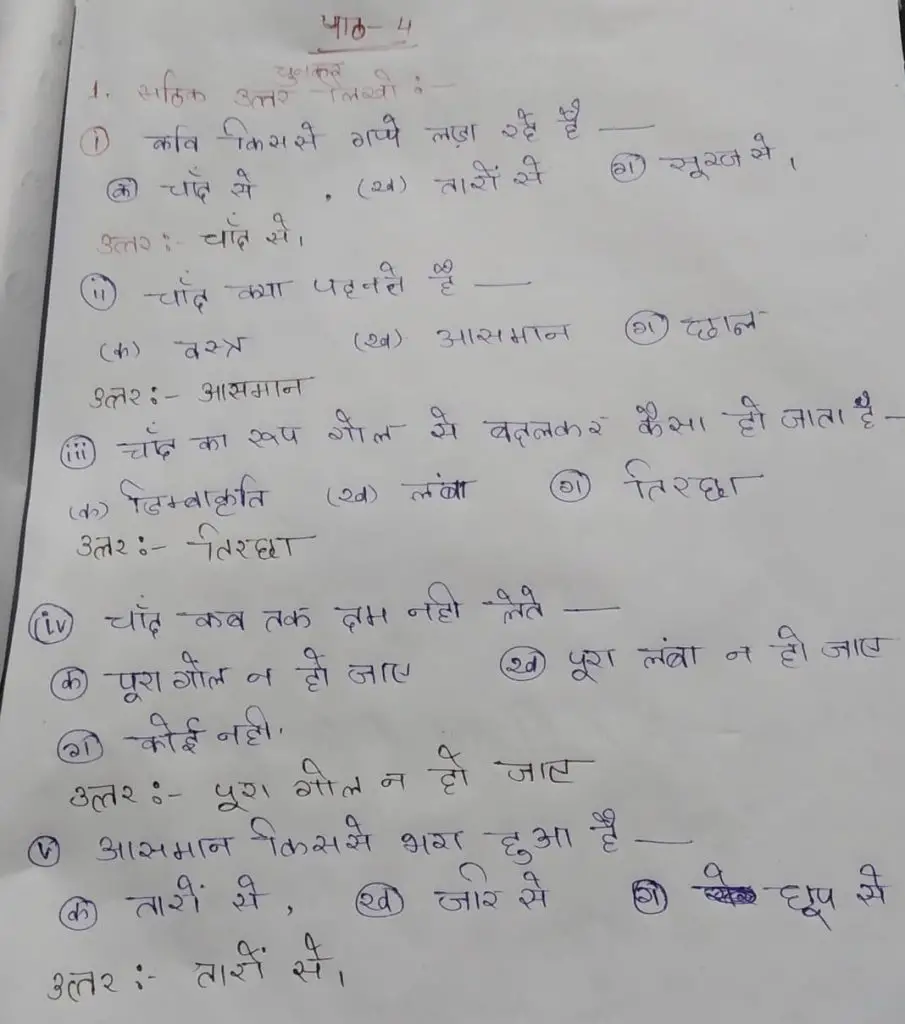 पाठ- 4
चुनकर
1. सठिक उत्तर लिखो :-
(i) कवि किससे गप्पे लड़ा रहे हैं —
(क) चाँद से , (ख) तारों से (ग) सूरज से ।
उत्तर :- चाँद से ।
(ii) चाँद क्या पहनते हैं —
(क) वस्त्र (ख) आसमान (ग) छाल
उत्तर :- आसमान
(iii) चाँद का रूप गोल से बदलकर कैसा हो जाता है -
(क) डिम्बाकृति (ख) लंबा (ग) तिरछा
उत्तर :- तिरछा
(iv) चाँद कब तक दम नही लेते —
(क) पूरा गोल न हो जाए (ख) पूरा लंबा न हो जाए
(ग) कोई नही.
उत्तर :- पूरा गोल न हो जाए
(v) आसमान किससे भरा हुआ है —
(क) तारों से , (ख) जीर से (ग) धूप से
उत्तर :- तारों से ।